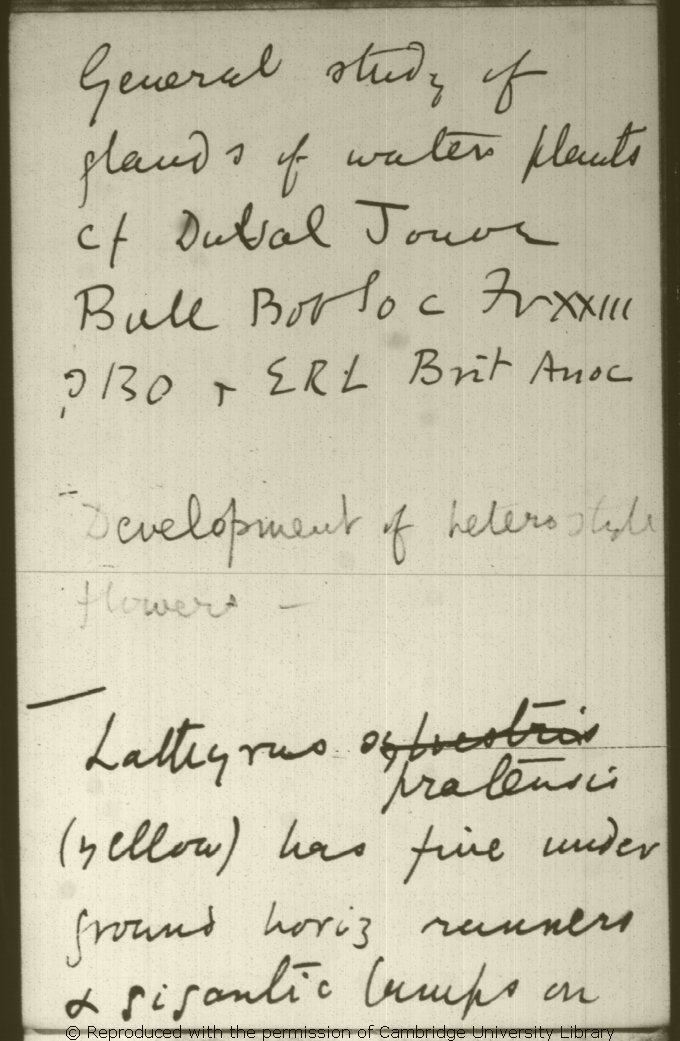 General study of
glands of water plants
cf Duval Jouve
Bull Bot Soc Fr XXIII
p130 + ERL Brit Assoc
Development of heterostyle
flowers —
Lathyrus sylvestris
pratensis
(yellow) has fine under
ground horiz runners
& gigantic lumps on
© Reproduced with the permission of Cambridge University Library